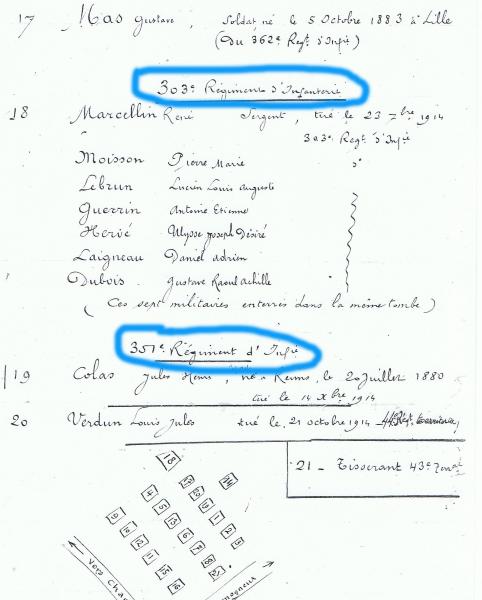 17 Mas Gustave, Soldat né le 5 Octobre 1883 à Lille
(Du 362e Regt d'Infie)
303e Régiment d'Infanterie
18 Marcellin René Sergent, tué le 23 7bre 1914
303e Regt d'Infie
Moisson Pierre Marie do
Lebrun Lucien Louis Auguste
Guerrin Antoine Etienne
Hervé Ulysse Joseph Désiré
Laigneau Daniel Adrien
Dubois Gustave Raoul Achille
(Ces sept militaires enterrés dans la même tombe)
351e Régiment d'Infie
19 Colas Jules Henri, né à Reims, le 20 Juillet 1880
tué le 14 Xbre 1914
20 Verdun Louis Jules tué le 21 octobre 1914
21 - Tisserant 43e
18
17 20 19 1 2 3
4 5 6 7 8 21
9 10 12 11 15 16
Vers